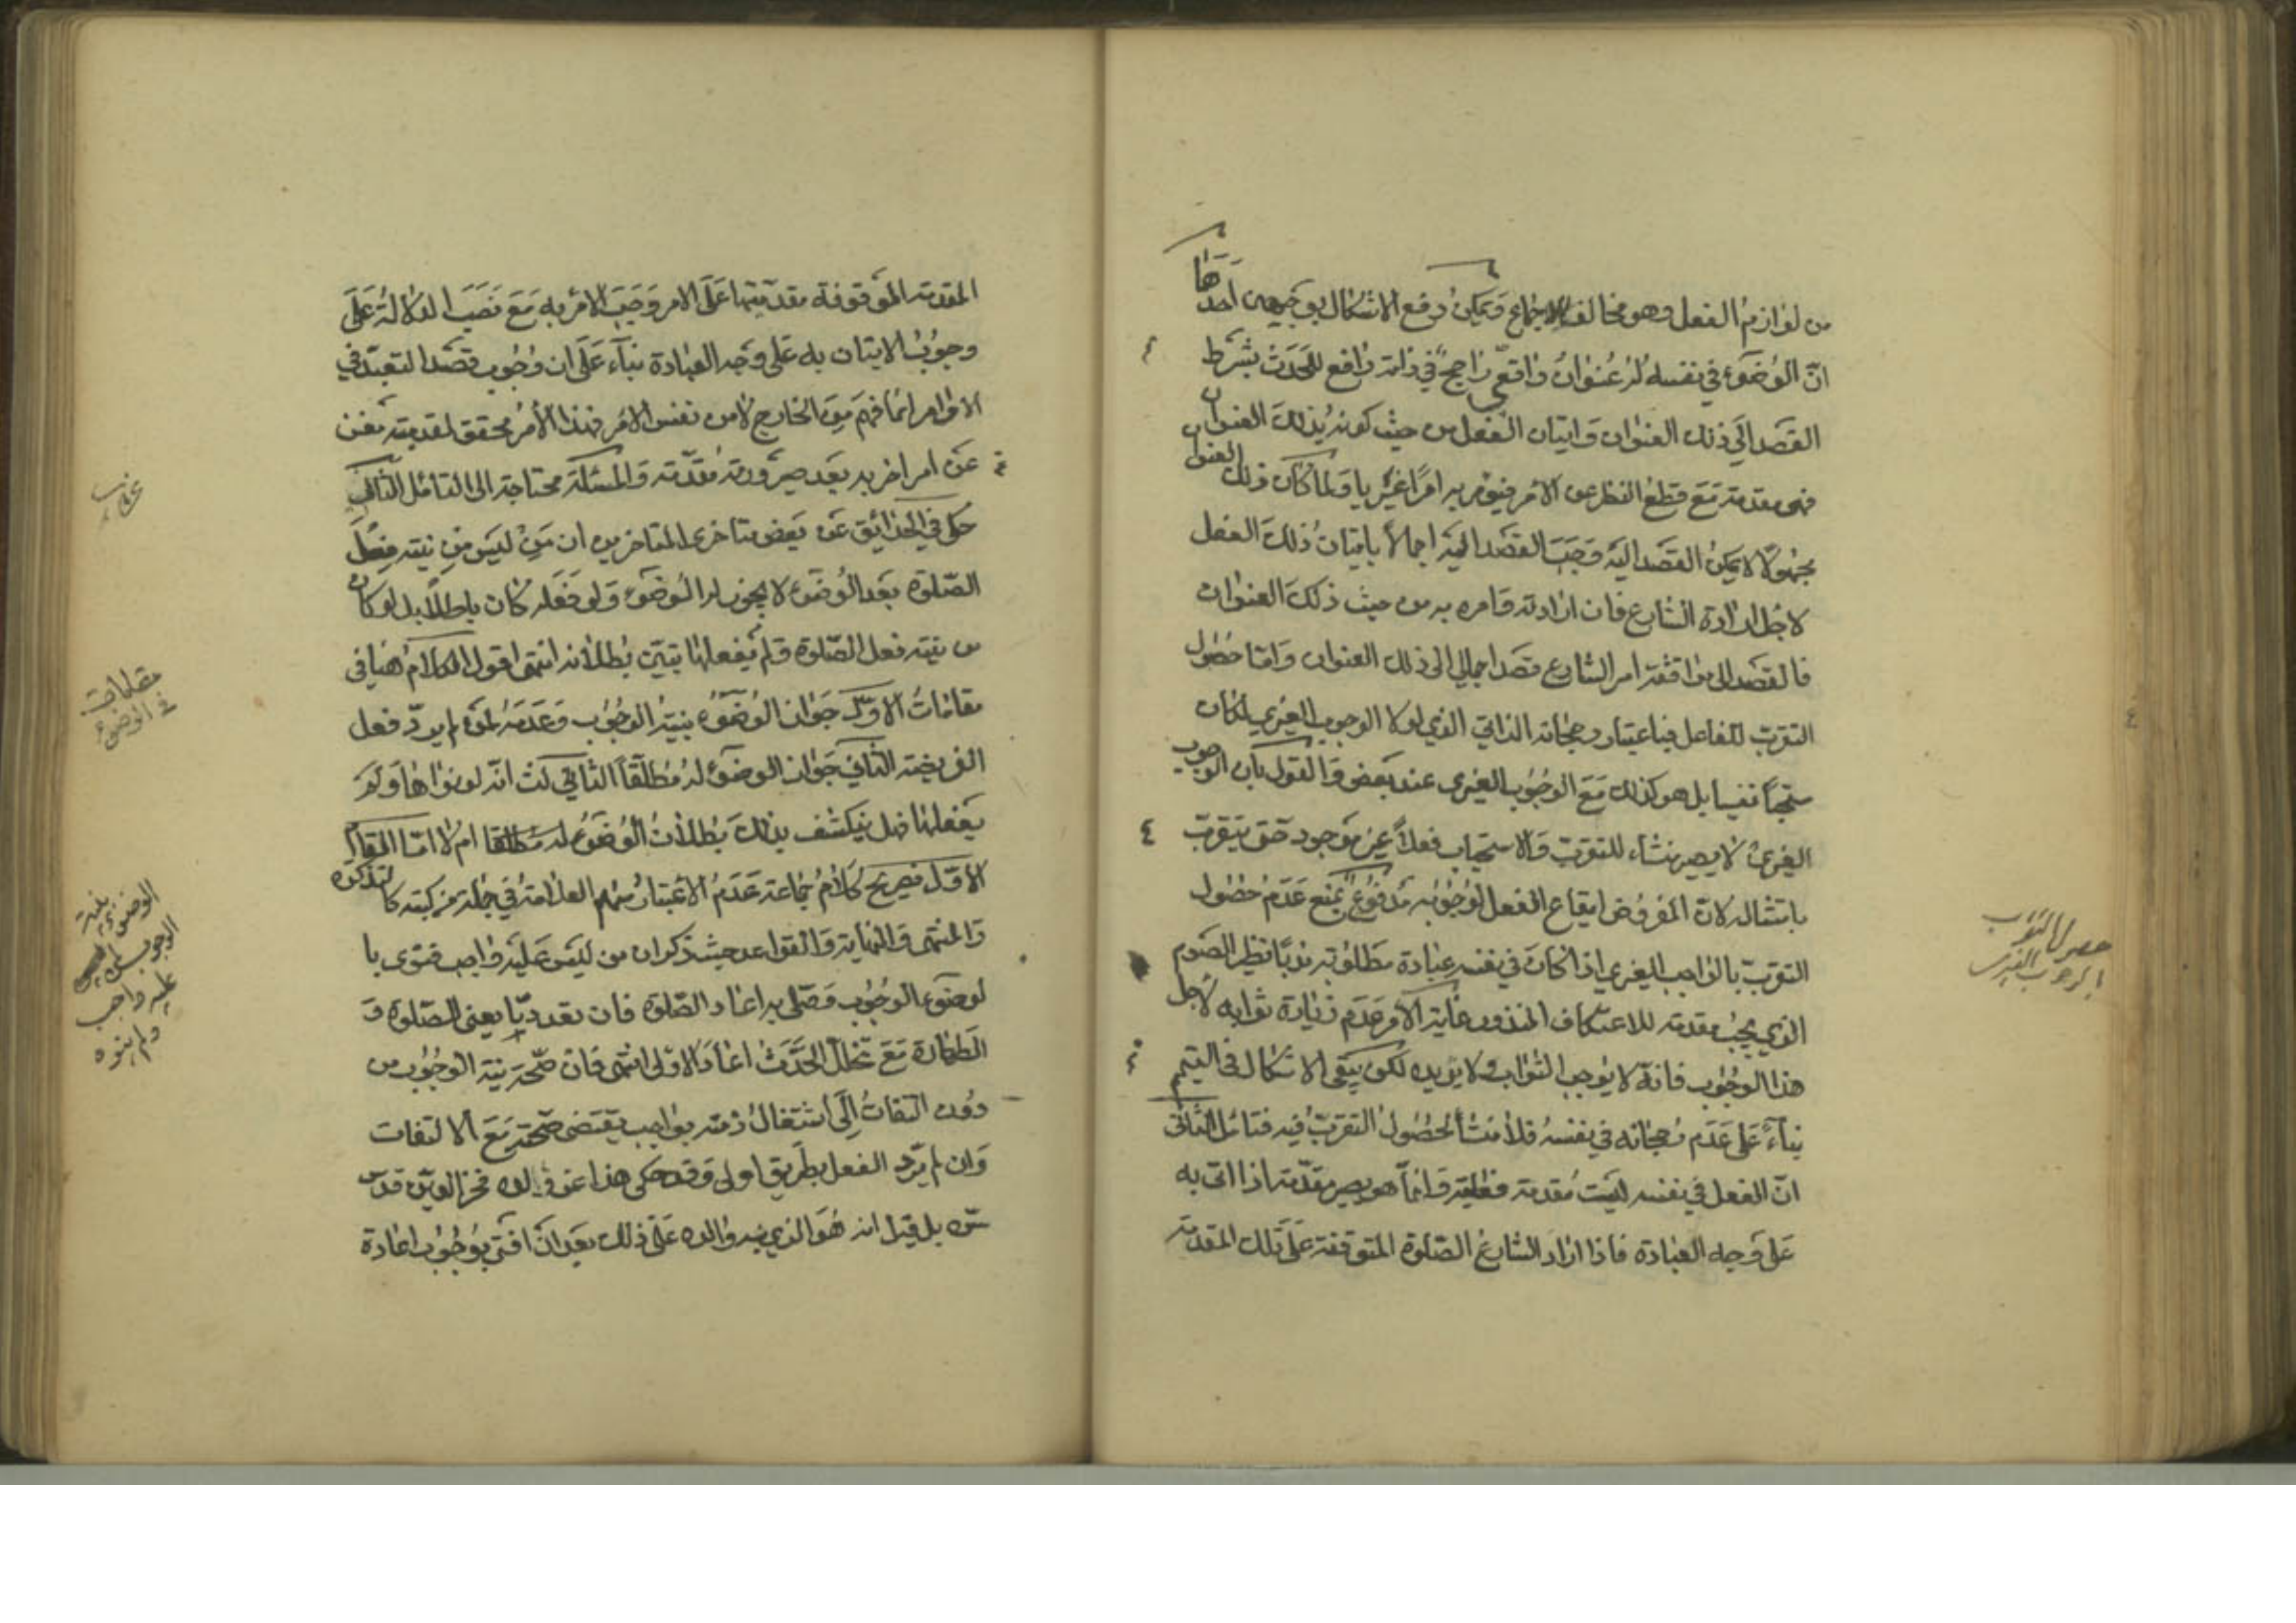 من لوازم الفعل وهو مخالف للاجماع ويمكن دفع الاشكال بوجهين احدها
انّ الوضوء في نفسه له عنوان واقعي راجح في ذاته رافع للحدث بشرط
القصد الى ذلك العنوان وايتان الفعل من حيث كونه بذلك العنوان
فهى مقدمته مع قطع النظر عن الامر فيؤمر به امرا غيريا ولما كان ذلك العنوان
مجهولا لا يمكن القصد اليه وجب القصد اليه اجمالا باتيان ذلك الفعل
لاجل ارادة الشارع فان ارادته وامره به من حيث ذلك العنوان
فالقصد الى موافقة امر الشارع قصد اجمالي الى ذلك العنوان وامّا حصول
التقرب للفاعل فباعتبار رجحانه الذاتي الذي لولا الوجوب الغيري لكان
مستحبا نفسيا بل هو كذلك مع الوجوب الغيري عند بعض والقول بان الوجوب
الغيري لا يصير منشاء للتقرب والاستحباب فعلا غير موجود حتى يتقرب
بامتثاله لان المفروض ايقاع الفعل لوجوبه مدفوع بمنع عدم حصول
التقرب بالواجب الغيري اذا كان في نفسه عبادة مطلوبة ندبا نظير الصوم
الذي يجب مقدمة للاعتكاف المنذور غاية الامر عدم زيادة ثوابه لاجل
هذا الوجوب فانه لا يوجب الثواب ولا يزيده لكن يبقى الاشكال في التيمم
بناء على عدم رجحانه في نفسه فلا منشأ لحصول التقرب فيه فتامل الثاني
انّ الفعل في نفسه ليست مقدمة فعلية وانما هو يصير مقدمة اذا اتى به
على وجه العبادة فاذا اراد الشارع الصلوة المتوقفة على تلك المقدمة
حصول الثواب
بالوجوب الغيري
المقدمة الموقوفة مقدميتها على الامر وجب الامر به مع نصب الدلالة على
وجوب الايتان به على وجه العبادة بناء على ان وجوب قصد التعبد في
الاوامر انما فهم من الخارج لا من نفس الامر فهذا الامر محقق لمقدميته مغن
عن امر اخر به بعد صيرورته مقدمة والمسئلة محتاجة الى التامل الثالث
حكى في الحدائق عن بعض متاخرى المتاخرين ان من ليس من نيته فعل
الصلوة بعد الوضوء لا يجوز له الوضوء ولو فعله كان باطلا بل لو كان
من نيته فعل الصلوة ولم يفعلها تبين بطلانه انتهى اقول الكلام هنا في
مقامات الاوّل جواز الوضوء بنية الوجوب وعدمه لمن لم يرد فعل
الفريضة الثاني جواز الوضوء له مطلقا الثالث انه لو نواها ولم
يفعلها فهل ينكشف بذلك بطلان الوضوء له مطلقا ام لا امّا المقام
الاوّل فصريح كلام جماعة عدم الاعتبار منهم العلامة في جملة من كتبه كالتذكرة
والمنتهى والنهاية والقواعد حيث ذكر ان من ليس عليه واجب فنوى با
لوضوء الوجوب وصلى به اعاد الصلوة فان تعددتا يعنى الصلوة و
الطهارة مع تخلل الحدث اعاد الاولى انتهى فان صحة نية الوجوب من
دون التفات الى اشتغال ذمته بواجب يقتضى صحته مع الالتفات
وان لم يرد الفعل بطريق اولى وقد حكى هذا عن والده فخر الدين قدس
سره بل قيل انه هو الذي نبه والده على ذلك بعد ان افتى بوجوب اعادة
مقامات
في الوضوء
الوضوء بنية
الوجوب لمن ليس
عليه واجب
ولم ينوه